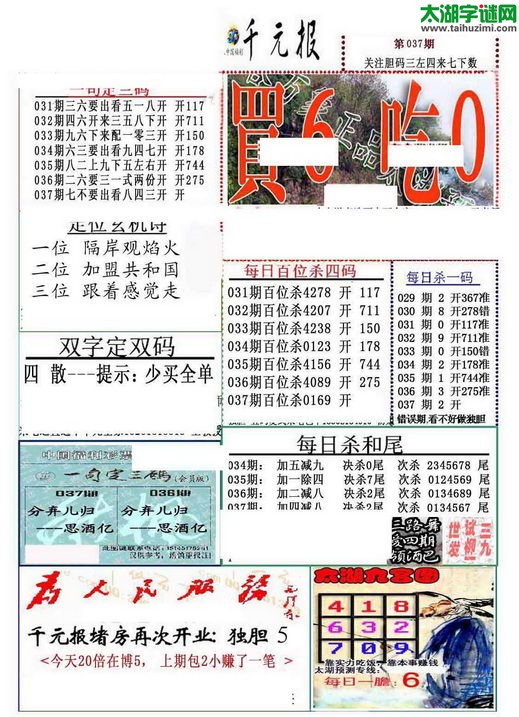 太湖字谜网
www.taihuzimi.com
千元报
第037期
关注胆码三左四来七下数
一句定三码
031期三六要出看五一八开 开117
032期四六开来三五八下开 开711
033期九六下来配一零三开 开150
034期六三要出看九四七开 开178
035期八二上九下五左右开 开744
036期二六要三一式两份开 开275
037期七不要出看八四三开 开
買6 吃0
定位玄机诗
一位 隔岸观焰火
二位 加盟共和国
三位 跟着感觉走
每日百位杀四码
031期百位杀4278 开 117
032期百位杀4207 开 711
033期百位杀4238 開 150
034期百位杀0123 开 178
035期百位杀4156 开 744
036期百位杀4089 开 275
037期百位杀0169 开
每日杀一码
029 期 2 开367准
030 期 8 开278错
031 期 0 开117准
032 期 9 开711准
033 期 0 开150错
034 期 2 开178准
035 期 1 开744准
036 期 3 开275准
037 期 2 开
错误期,看不好做独胆
双字定双码
四 散---提示：少买全单
每日杀和尾
034期： 加五减九 决杀0尾 次杀 2345678 尾
035期： 加一除四 决杀7尾 次杀 0124569 尾
036期： 加二减八 决杀2尾 次杀 0134689 尾
037期： 加四减八 决杀2尾 次杀 0134567 尾
中国福利彩票
一句定三码(会员版)
037期 036期
分弃儿归 分弃儿归
---思酒亿 ---思酒亿
三路舞
爱四期
领酒巴
三九
试柳
世发
为人民服务
千元报堵房再次开业: 独胆 5
<今天20倍在博5, 上期包2小赚了一笔 >
太湖九宫图
4 1 8
6 3 2
7 0 9
靠实力吃饭，靠本事赚钱
太湖预测专线:
每日一胆: 6